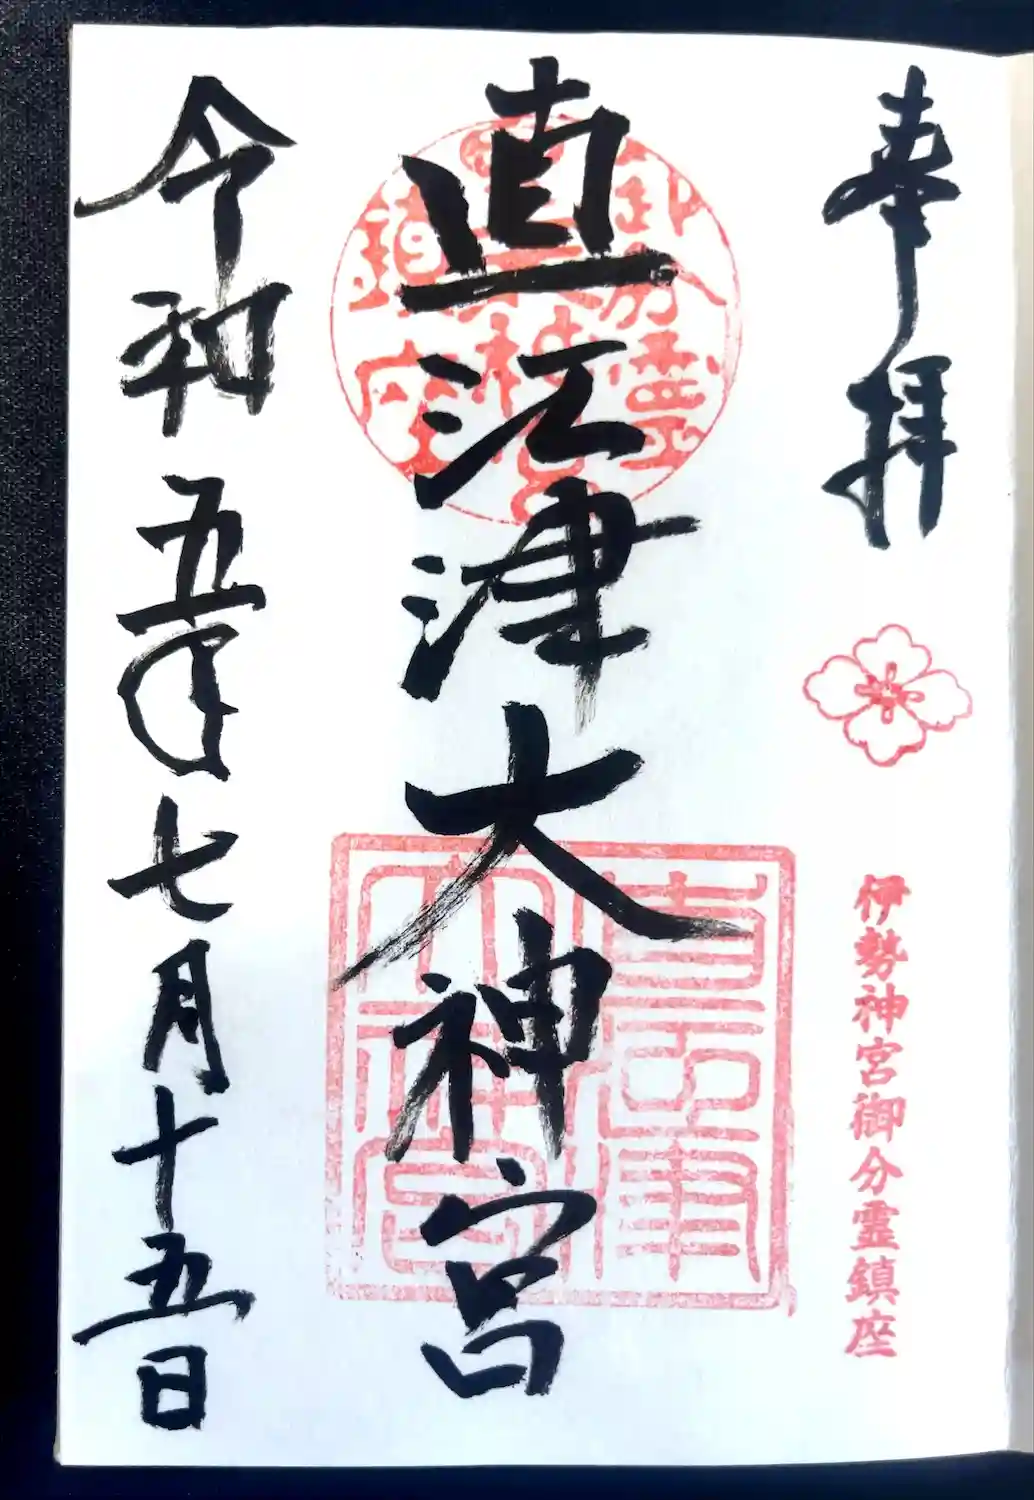 奉拝
伊勢神宮御分霊鎮座
直江津大神宮
直江津
大神宮
令和五年七月十五日